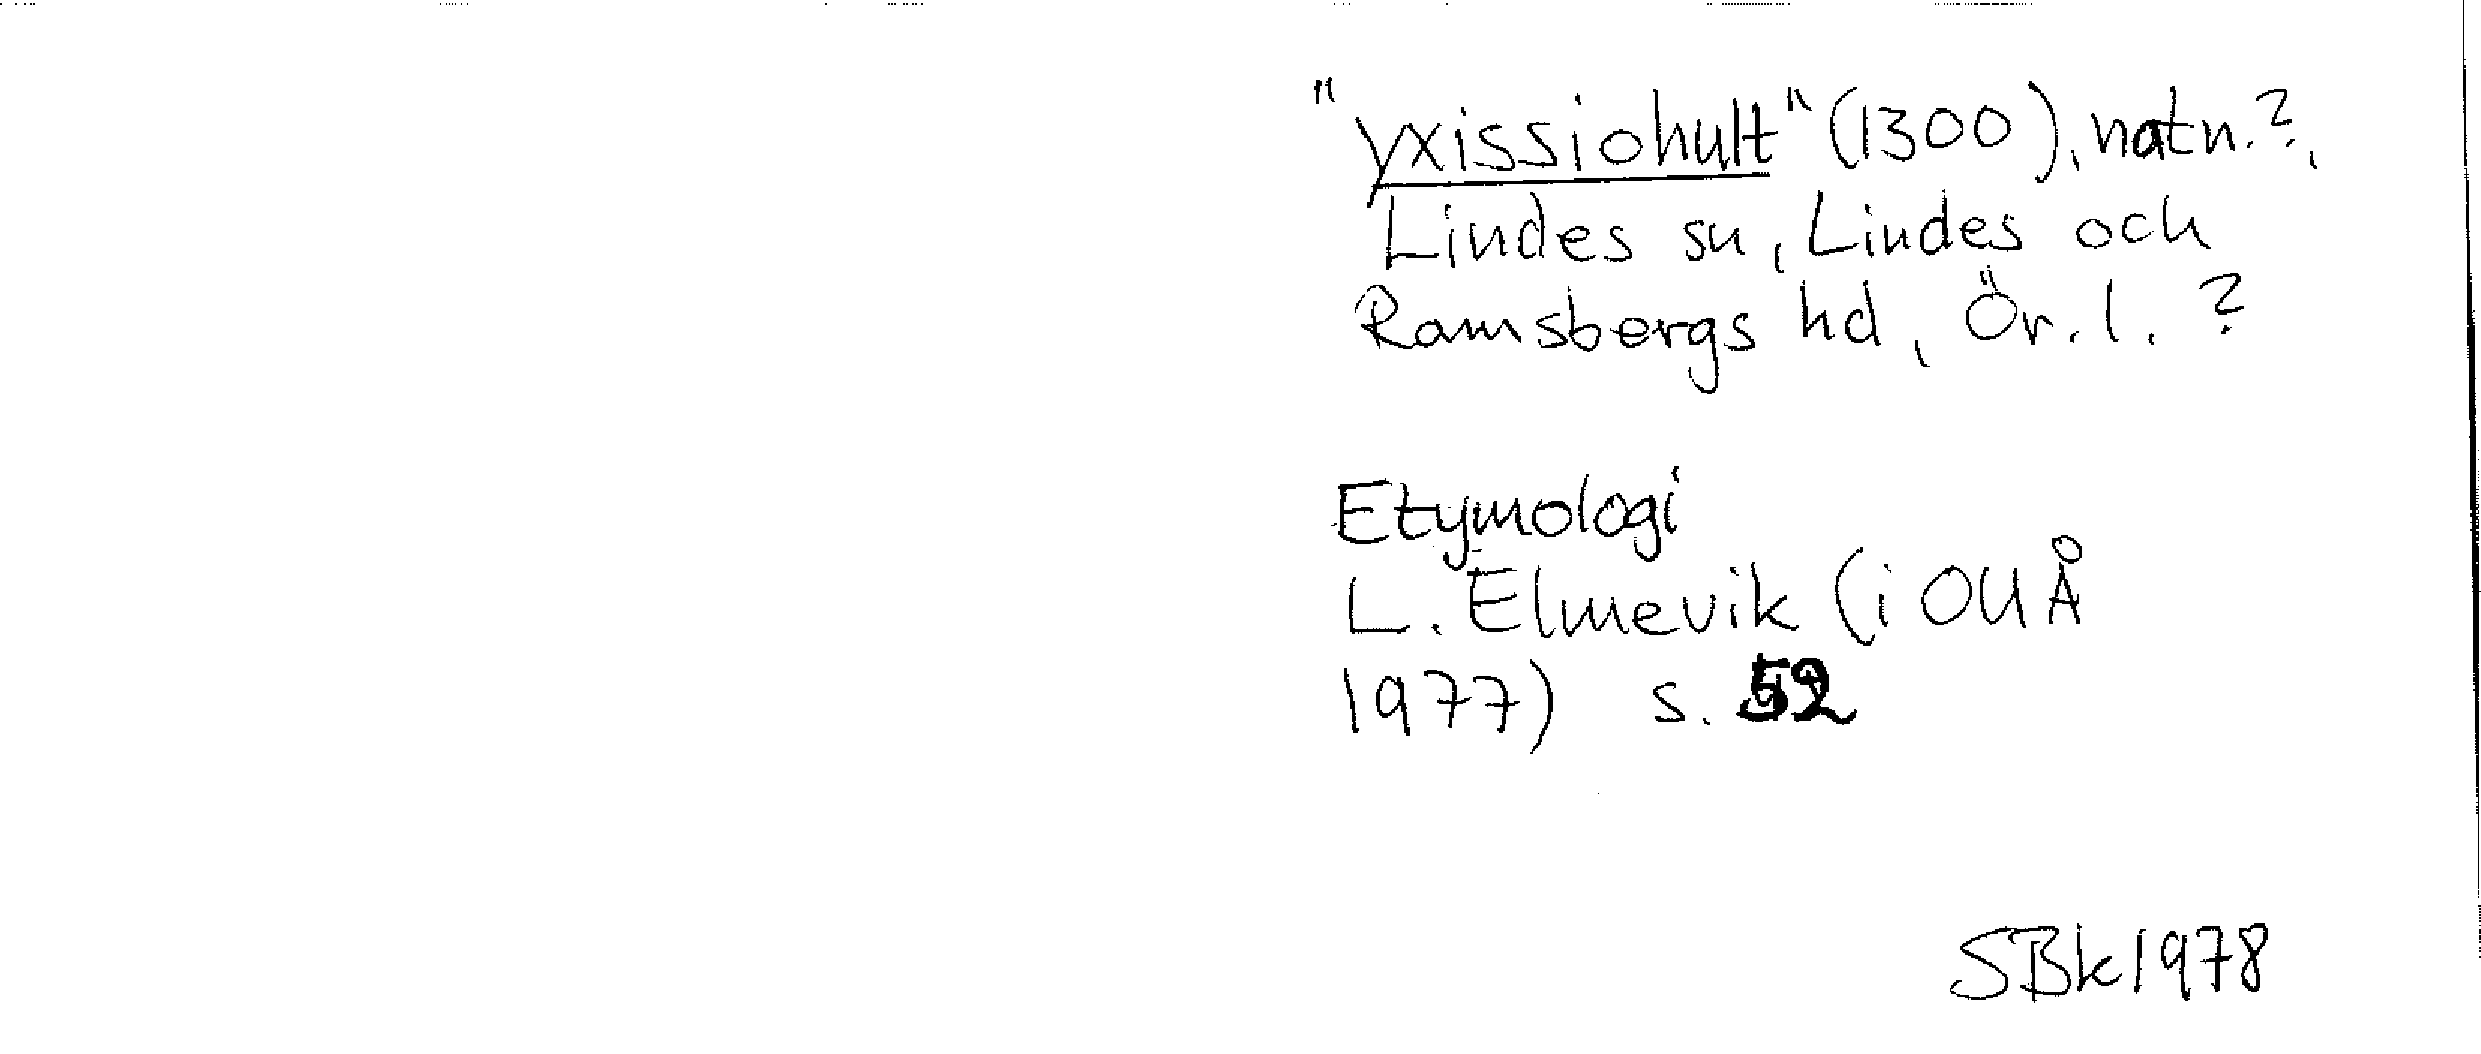 "yxissiohult" (1300), natn.?,
Lindes sn, Lindes och
Ramsbergs hd, Ör. l. ?
Etymologi
L. Elmevik (i OUÅ
1977) s. 52
SBk 1978